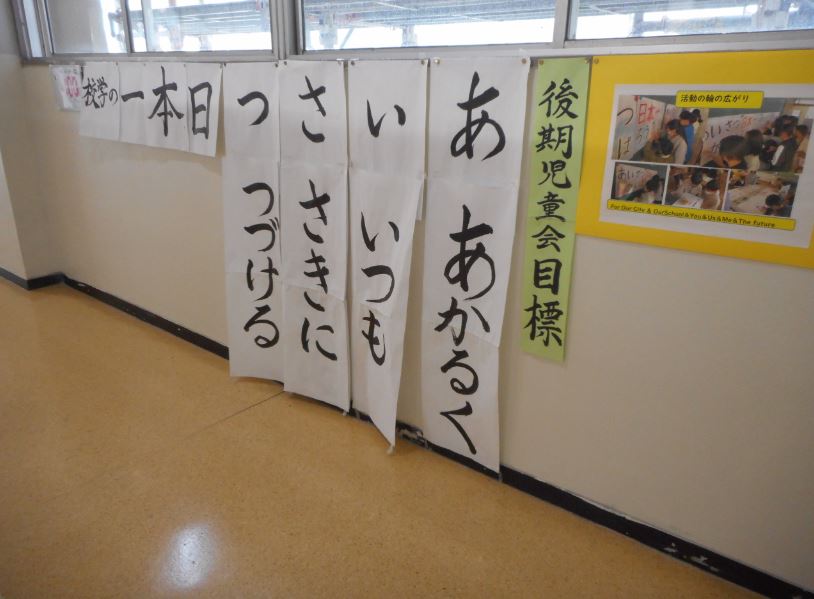 活動の輪の広がり
For Our City & OurSchool&You&Us&Me&The future
後期児童会目標
あ あかるく
い いつも
さ さきに
つ つづける
日本一の学校